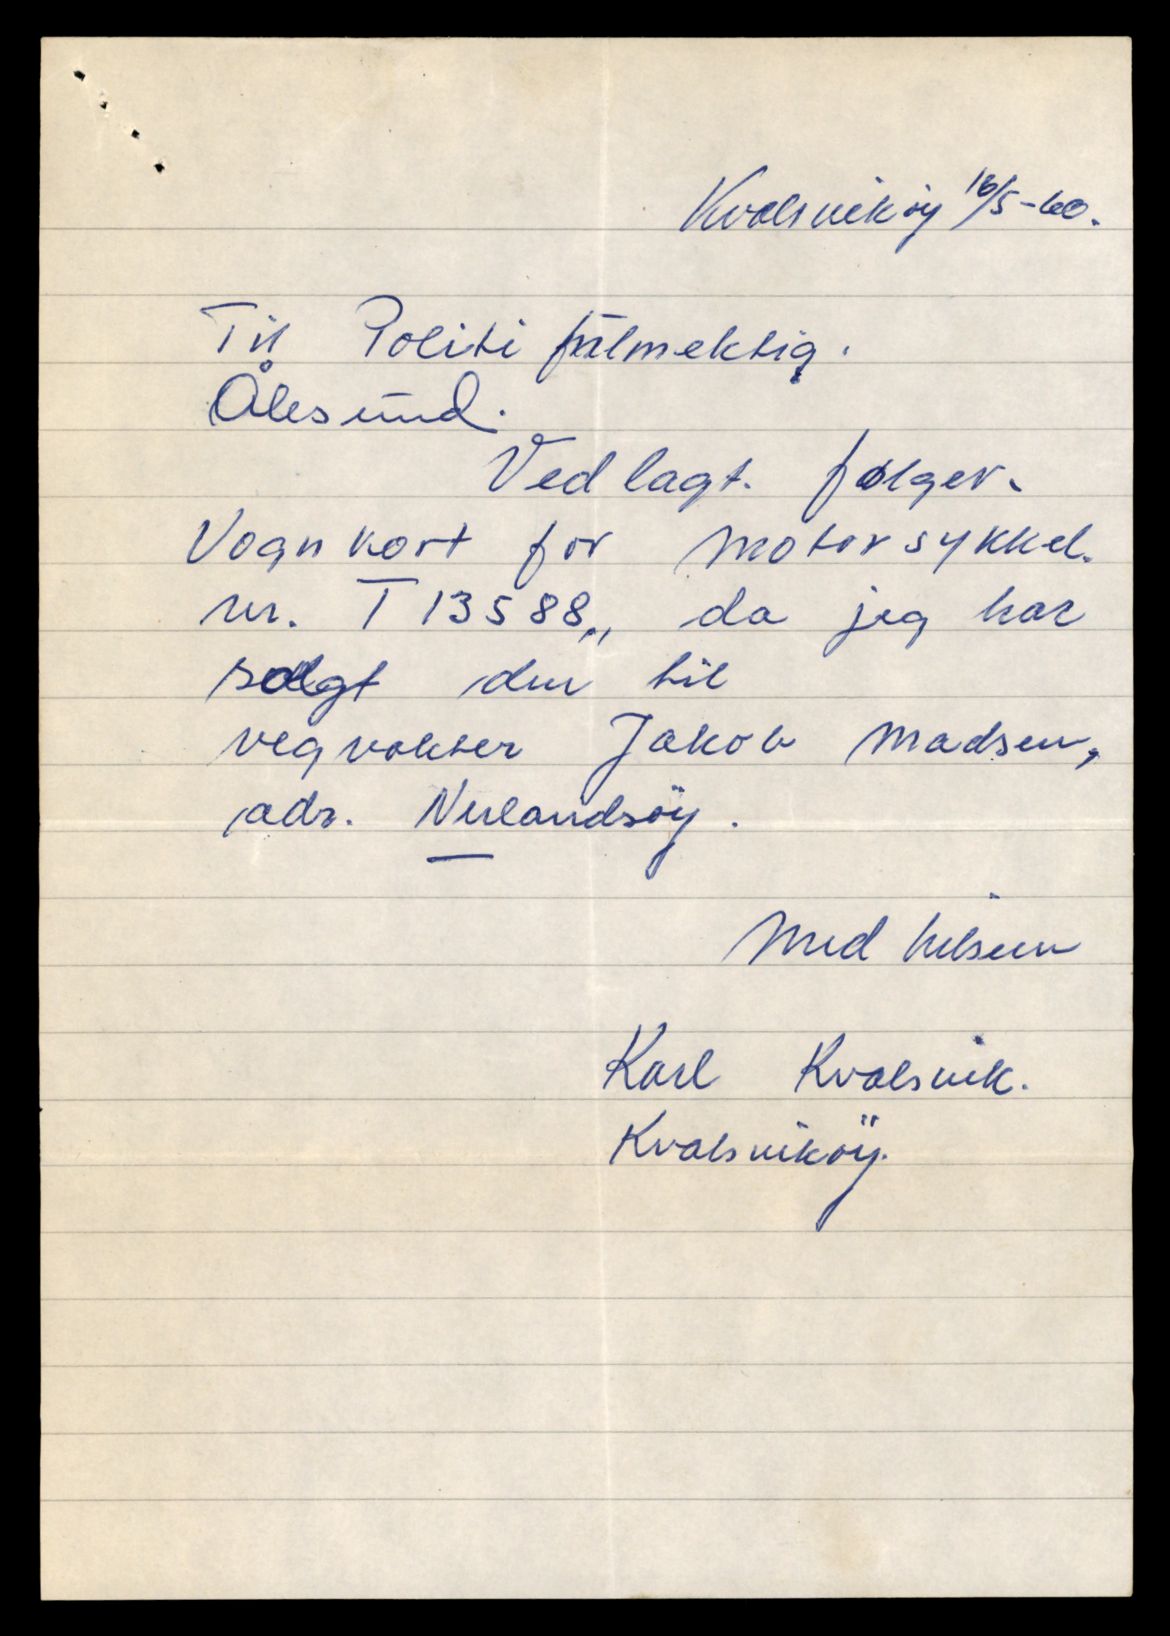 Kvalsviköy 16/5-60.
Til Politi fülmektig.
Ålesund.
Vedlagt. følger.
Vognkort for motorsykkel.
nr. T 13588,, da jeg har
solgt den til
vegvokter Jakob Madsen,
adr. Nerlandsöy.
Med hilsen
Karl Kvalsvik.
Kvalsviköy.